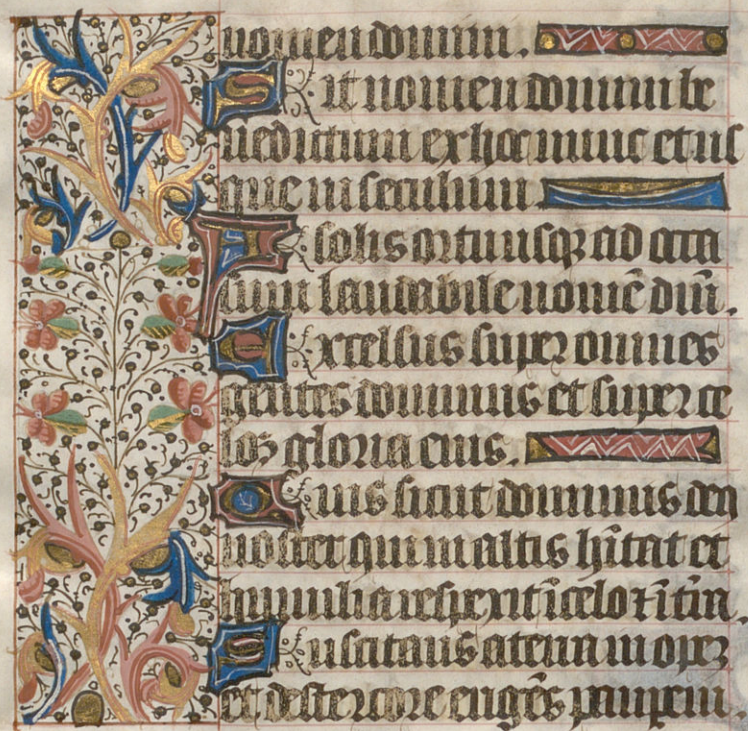 nomen domini.
Sit nomen domini be
nedictum ex hoc nunc et us
que in seculum
A solis ortu usqz ad occa
sum laudabile nomē dm̄.
Excelsus super omnes
gentes dominus et super ce
loꝝ gloria eius.
Quis sicut dominus deꝰ
noster qui in altis hītat et
humilia respexit ī celo ⁊ ī tīra.
Suscitans a terra inopeꝫ
et de stercore erigēs pauperem.